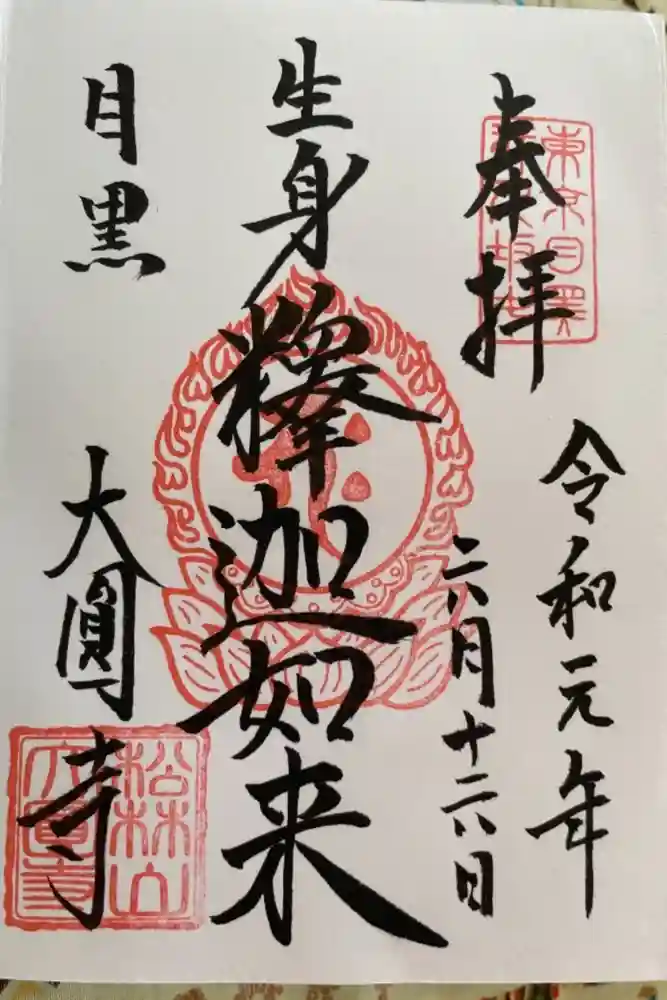 奉拝
東京目黒
令和元年
六月十六日
生身釋迦如来
目黒 大圓寺
松林山
大圓寺